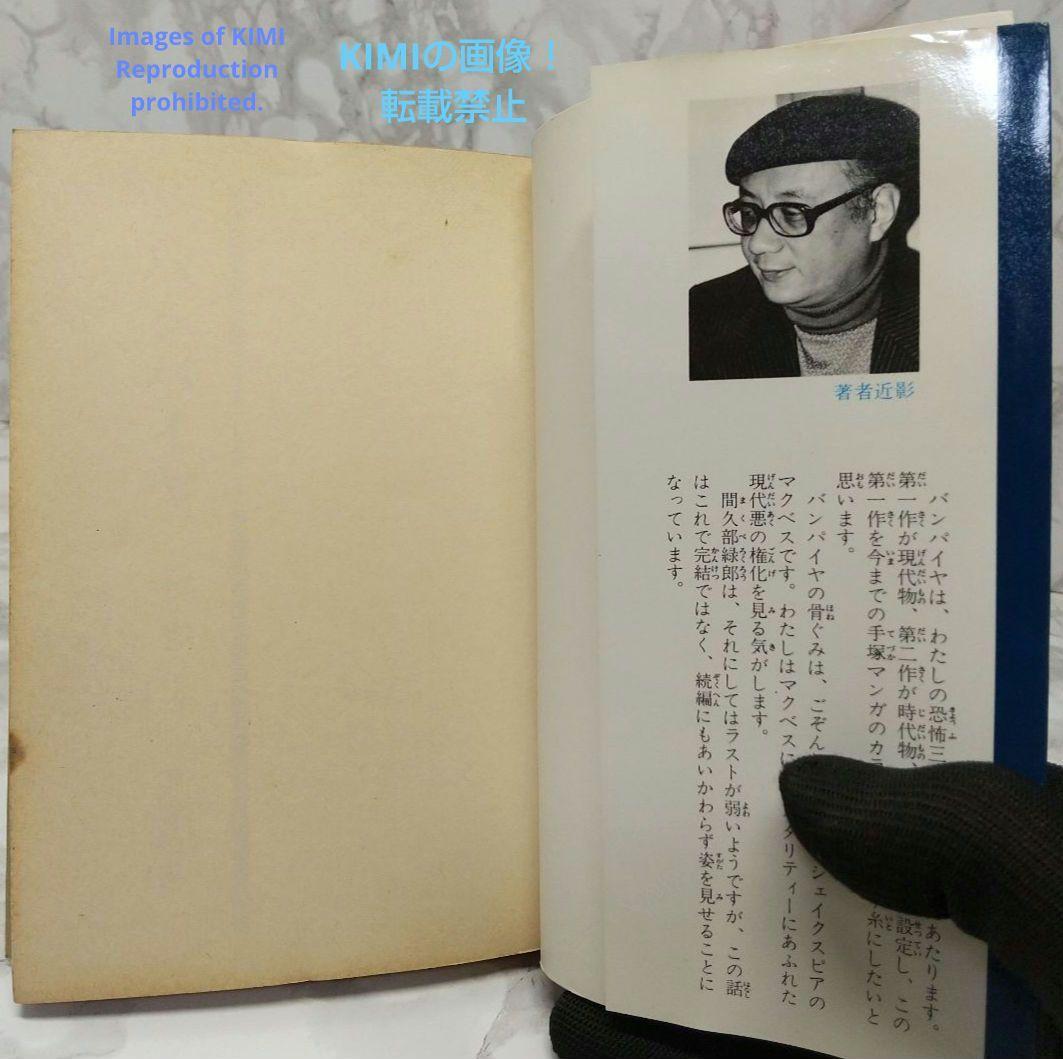 Images of KIMI
Reproduction
prohibited.
KIMIの画像！
転載禁止
著者近影
バンパイヤは、わたしの恐怖三あたります。
第一作が現代物、第二作が時代物、設定し、この
第一作を今までの手塚マンガのカ糸にしたいと
思います。
バンパイヤの骨ぐみは、ごぞんシェイクスピアの
マクベスです。わたしはマクベスにタリティーにあふれた
現代悪の権化を見る気がします。
間久部緑郎は、それにしてはラストが弱いようですが、この話
はこれで完結ではなく、続編にもあいかわらず姿を見せることに
なっています。